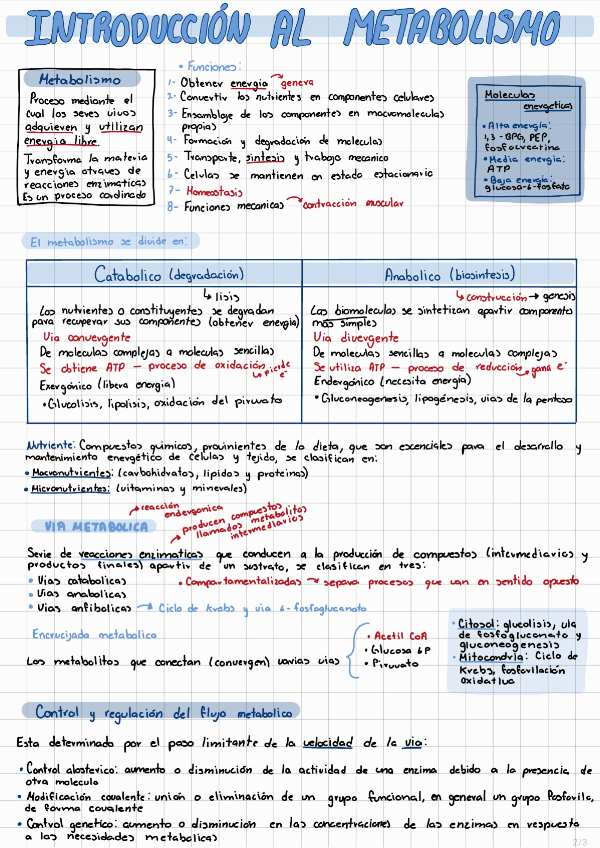 INTRODUCCIÓN AL METABOLISMO
Metabolismo
Proceso mediante el
cual los seres vivos
adquieren y utilizan
energia libre
Transforma la materia
y energia atraves de
reacciones enzimaticas
Es un proceso cordinado
• Funciones:
1- Obtener energia → genera
2- Convertir los nutrientes en componentes celulares
3- Ensamblaje de los componentes en macromoleculas
propias
4- Formación y degradación de moleculas
5- Transporte, sintesis y trabajo mecanico
6- Celulas se mantienen en estado estacionario
7- Homeostasis
8- Funciones mecanicas → contracción muscular
Moleculas
energeticas
• Alta energia:
1,3-BPG, PEP,
fosfocreatina
• Media energia:
ATP
• Baja energia:
glucosa-6-fosfato
El metabolismo se divide en:
Catabolico (degradación)
↳ lisis
Los nutrientes o constituyentes se degradan
para recuperar sus componentes (obtener energia)
Via convergente
De moleculas complejas a moleculas sencillas
Se obtiene ATP — proceso de oxidación ↳ pierde
e-
Exergónico (libera energia)
• Glucolisis, lipolisis, oxidación del piruvato
Anabolico (biosintesis)
↳ construcción → genesis
Las biomoleculas se sintetizan apartir componentes
más simples
Via divergente
De moleculas sencillas a moleculas complejas
Se utiliza ATP — proceso de reducción → gana e-
Endergónico (necesita energia)
• Gluconeogenesis, lipogénesis, vias de la pentosa
Nutriente: Compuestos quimicos, provinientes de la dieta, que son escenciales para el desarrollo y
mantenimiento energético de celulas y tejido, se clasifican en:
• Macronutrientes: (carbohidratos, lipidos y proteinas)
• Micronutrientes: (vitaminas y minerales)
→ reacción
endergonica
VIA METABOLICA
→ producen compuestos
llamados metabolitos
intermediarios
Serie de reacciones enzimaticas que conducen a la producción de compuestos (intermediarios y
productos finales) apartir de un sustrato, se clasifican en tres:
• Vias catabolicas
• Vias anabolicas
• Vias anfibolicas → Ciclo de Krebs y via 6-fosfogluconato
• Compartamentalizadas → separa procesos que van en sentido opuesto
Encrucijada metabolica
Los metabolitos que conectan (convergen) varias vias
• Acetil CoA
• Glucosa 6P
• Piruvato
• Citosol: glucolisis, via
de fosfogluconato y
gluconeogenesis
• Mitocondria: Ciclo de
Krebs, fosforilación
oxidativa
Control y regulación del flujo metabolico
Esta determinado por el paso limitante de la velocidad de la via:
• Control alosterico: aumento o disminución de la actividad de una enzima debido a la presencia de
otra molecula
• Modificación covalente: unión o eliminación de un grupo funcional, en general un grupo fosforilo,
de forma covalente
• Control genetico: aumento o disminución en las concentraciones de las enzimas en respuesta
a las necesidades metabolicas
2/3